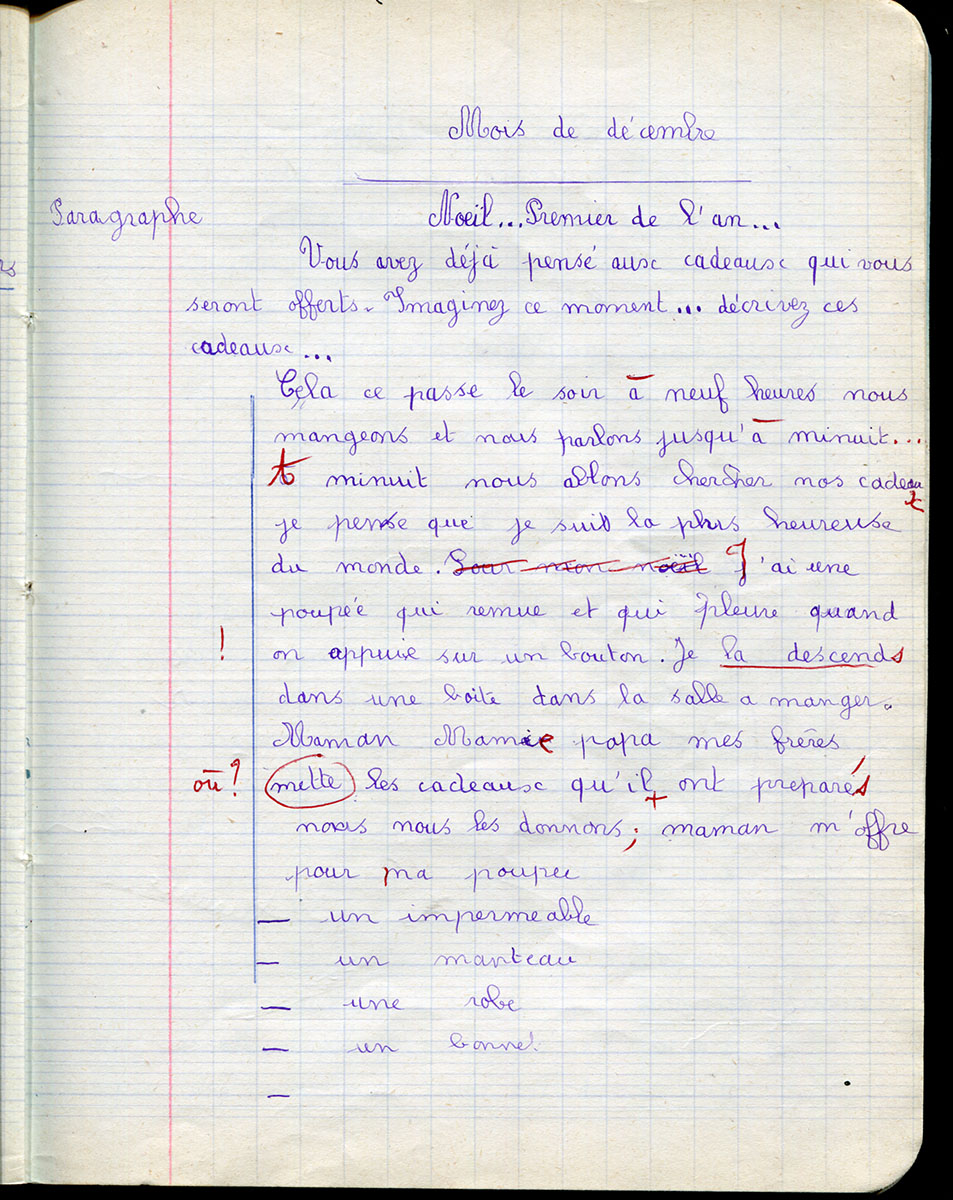 Mois de décembre
Paragraphe Noeïl... Premier de l'an...
Vous avez déjà pensé aux cadeaux qui vous
seront offerts. Imaginez ce moment... décrivez ces
cadeaux...
Cela ce passe le soir à neuf heures nous
mangeons et nous parlons jusqu'à minuit...
A minuit nous allons chercher nos cadeau
je pense que je suis la plus heureuse
du monde. Pour mon noëil J'ai une
poupée qui remue et qui pleure quand
! on appuie sur un bouton. Je la descends
dans une boite dans la salle a manger.
Maman Mamie papa mes frêres
où? mette les cadeaux qu'il+ ont préparés
nous nous les donnons; maman m'offre
pour ma poupée
— un impermeable
— un manteau
— une robe
— un bonnet
—